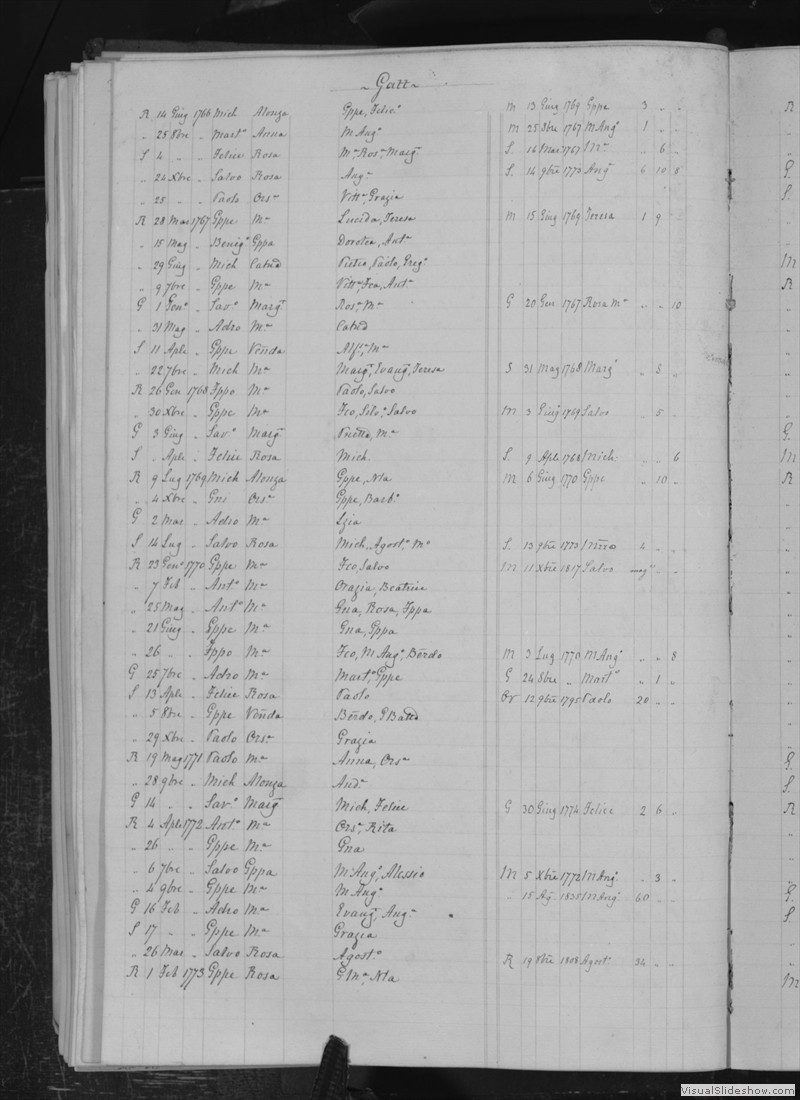 Gatt
R 14 Giug 1766 Mich Alonza Gppe, Felic.a M 13 Giug 1769 Gppe 3 „ „
„ 25 8bre „ Mart.o Anna M Ang.o M 25 8bre 1767 M Ang.o 1 „ „
S 4 „ „ Felice Rosa M.a Ros.a Marg.a S. 14 Mar 1767 M.a „ 6 „
„ 24 Xbre „ Salvo Rosa Ang.a S. 14 9bre 1773 Ang.a 6 10 8
„ 25 „ „ Paolo Ors.a Vitt.a Grazia
R 28 Mar 1767 Gppe M.a Lucida, Teresa M 15 Giug 1769 Teresa 1 9 „
„ 15 Mag „ Benig.o Gppa Dorotea, Ant.a
„ 29 Giug „ Mich Catnd Pietro, Paolo, Greg.o
„ 9 7bre „ Gppe M.a Vitt.a Fco, Ant.o
G 1 Gen.o „ Sav.o Marg.a Ros.a M.a G 20 Gen 1767 Rosa M.a „ „ 10
„ 31 Mag „ Adro M.a Catnd
S 11 Aple „ Gppe Vonda Alf.a M.a
„ 22 7bre „ Mich M.a Marg.a, Evang.a, Teresa S 31 Mag 1768 Marg.a „ 5 „
R 26 Gen 1768 Fppo M.a Paolo, Salvo
„ 30 Xbre „ Gppe M.a Fco, Silv.o Salvo M 3 Giug 1769 Salvo „ 5 „
G 3 Giug „ Sav.o Marg.a M.a
S „ Aple „ Felice Rosa Mich S 9 Aple 1768 Mich: „ „ 6
R 9 Lug 1769 Mich Alonza Gppe, Nla M 6 Giug 1770 Gppe „ 10 „
„ 4 Xbre „ Gni Ors.a Gppe, Barb.a
G 2 Mar „ Adro M.a Lzia
S 14 Lug „ Salvo Rosa Mich, Agost.o M.o S. 13 9bre 1773 4 „ „
R 23 Gen.o 1770 Gppe M.a Fco, Salvo M 11 Xbre 1817 Salvo mag.e „ „
„ 7 Feb „ Ant.o M.a Orazia, Beatrice
„ 25 Mag „ Ant.o M.a Gna, Rosa, Fppa
„ 21 Giug „ Gppe M.a Gna, Gppa
„ 26 „ „ Fppo M.a Fco, M Ang.o, Bördo M 3 Lug 1770 M Ang.o „ „ 8
G 25 7bre „ Adro M.a Mart.o, Gppe G 24 8bre „ Mart.o „ 1 „
S 13 Aple „ Felice Rosa Paolo Or 12 9bre 1795 Paolo 20 „ „
„ 5 8bre „ Gppe Vonda Bördo, G Batta
„ 29 Xbre „ Paolo Ors.a Grazia
R 19 Mag 1771 Paolo M.a Anna, Ors.a
„ 28 9bre „ Mich Alonza And.a
G 14 „ „ Sav.o Marg.a Mich, Felice G 30 Giug 1774 Felice 2 6 „
R 4 Aple 1772 Ant.o M.a Ors.a, Rita
„ 26 „ „ Gppe M.a Gna
„ 6 7bre „ Salvo Gppa M Ang.o, Alessio M 5 Xbre 1772 M Ang.o „ 3 „
„ 4 9bre „ Gppe M.a M Ang.o „ 15 Ag. 1835 M Ang.o 60 „ „
G 16 Feb „ Adro M.a Evang.a, Ang.a
S 17 „ „ Gppe M.a Grazia
„ 26 Mar „ Salvo Rosa Agost.o R 19 8bre 1808 Agost. 34 „ „
R 1 Feb 1773 Gppe Rosa G M.a, Nla
VisualSlideshow.com